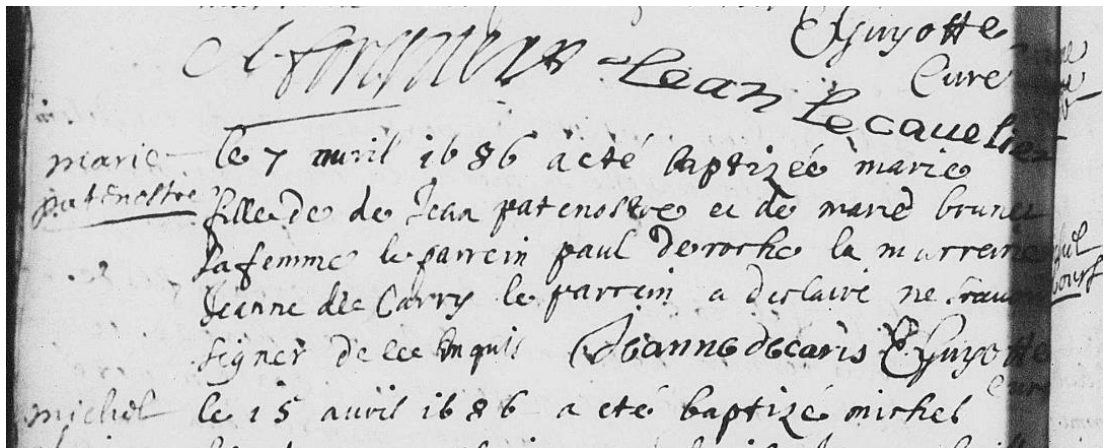 Guyotte
Curé
Jean Lecauelier
marie
patenostre
le 7 auril 1686 a eté baptizée marie
fille de de Jean patenostre et de marie brunet
sa femme le parrein paul deroche la marreine
Jeanne de Carry le parrein a declairé ne
signer de ce enquis Jeanne decaris Guyotte
Curé
michel
le 15 auril 1686 a eté baptizé michel